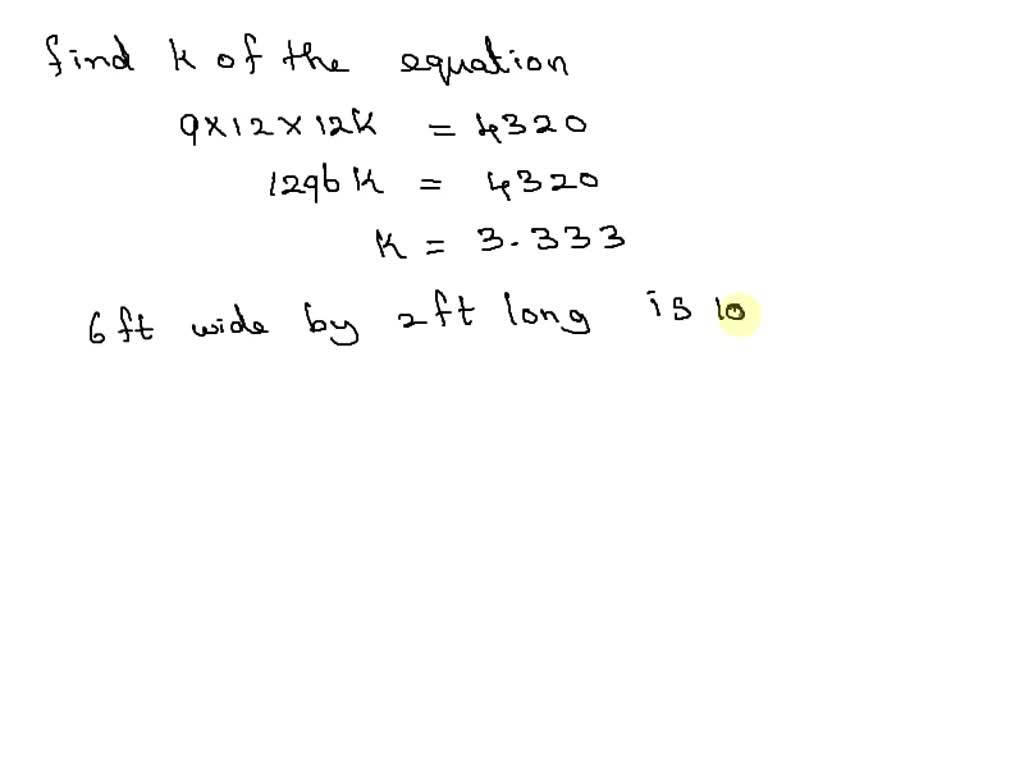 find k of the equation
9×12×12k = 4320
1296k = 4320
k = 3.333
6ft wide by 2ft long is 10